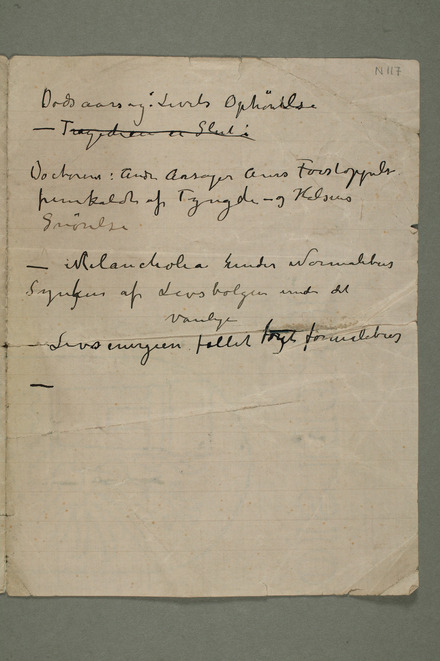 N 117
Dødsaarsag: Livets Ophørelse
— Tragedien er Slut:
Doctoren: Andre Aarsager Anus Forstoppelse
fremkaldt af Tyngde – og Halsens
Snörelse
— Melancholia under Normalitus
Synken af Livsbølgen under det
vanlige
Livsenergien faldet
—